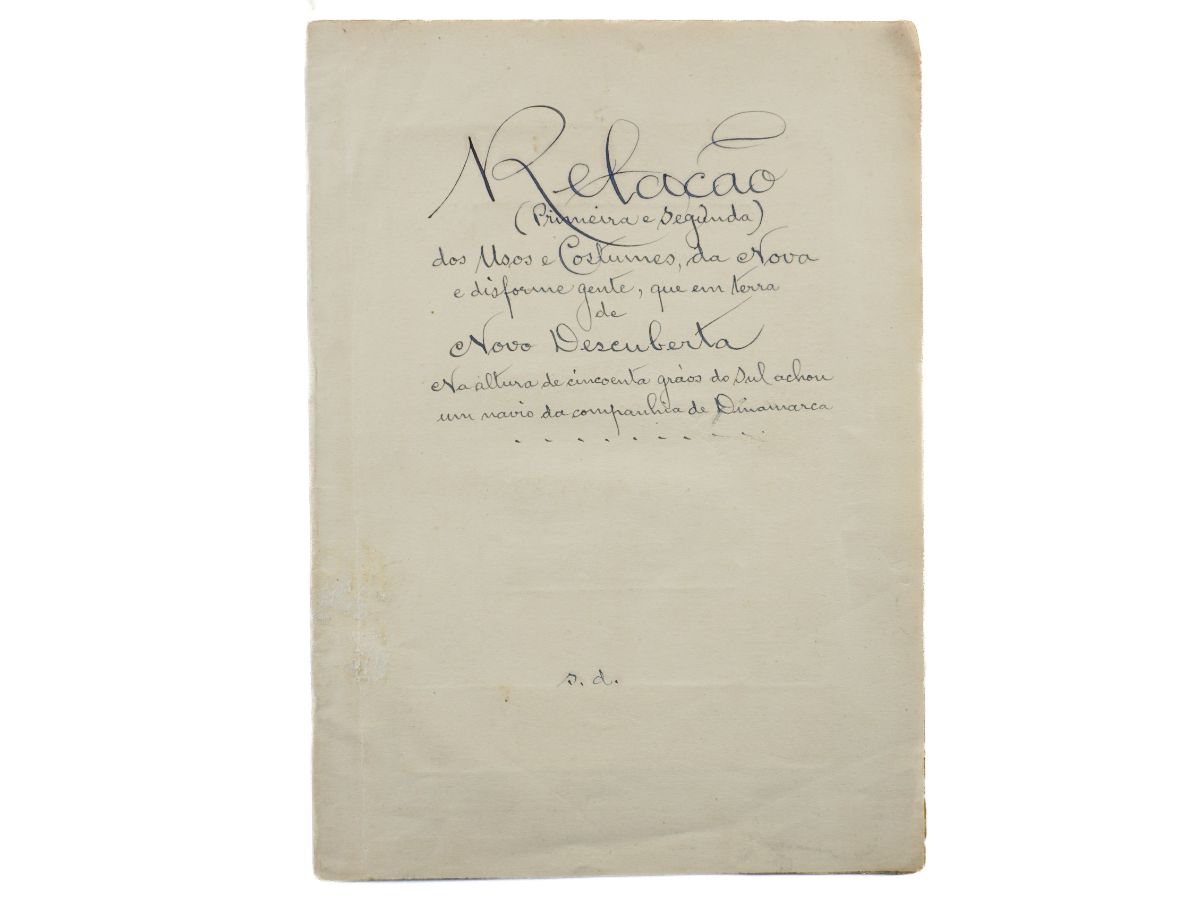 Relação
(Primeira e Segunda)
dos Usos e Costumes, da Nova
e disforme gente, que em terra
de
Novo Descuberta
Na altura de cincoenta gráos do Sul achou
um navio da companhia de Dinamarca
. . . . . . . . . .
s. d.